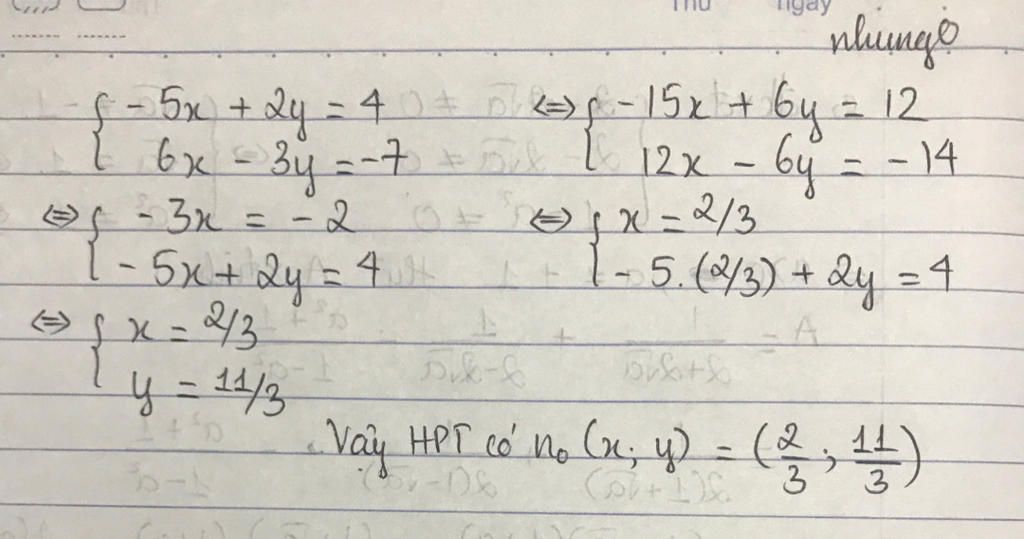 Thứ ngày
nhungo
{ -5x + 2y = 4 ⇔ { -15x + 6y = 12
6x - 3y = -7 12x - 6y = -14
⇔ { -3x = -2 ⇔ { x = 2/3
-5x + 2y = 4 -5.(2/3) + 2y = 4
⇔ { x = 2/3
y = 11/3
Vậy HPT có n₀ (x; y) = (2/3; 11/3)